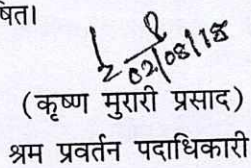 षित।
02/08/18
(कृष्ण मुरारी प्रसाद)
श्रम प्रवर्तन पदाधिकारी